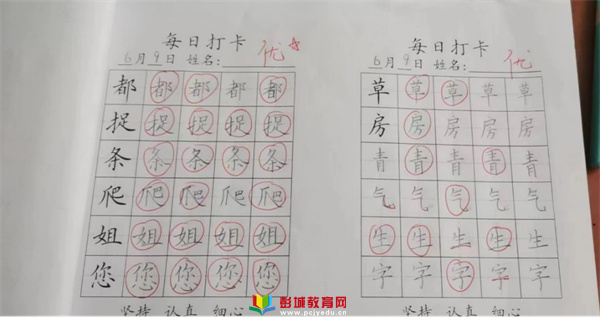 每日打卡
6月9日 姓名:
优
都 都 都 都 都
捉 捉 捉 捉 捉
条 条 条 条 条
爬 爬 爬 爬 爬
姐 姐 姐 姐 姐
您 您 您 您 您
坚持 认真 细心
每日打卡
6月9日 姓名:
优
草 草 草 草 草
房 房 房 房 房
青 青 青 青 青
气 气 气 气 气
生 生 生 生 生
字 字 字 字 字
坚持 认真 细心
彭城教育网
www.pcjyedu.cn